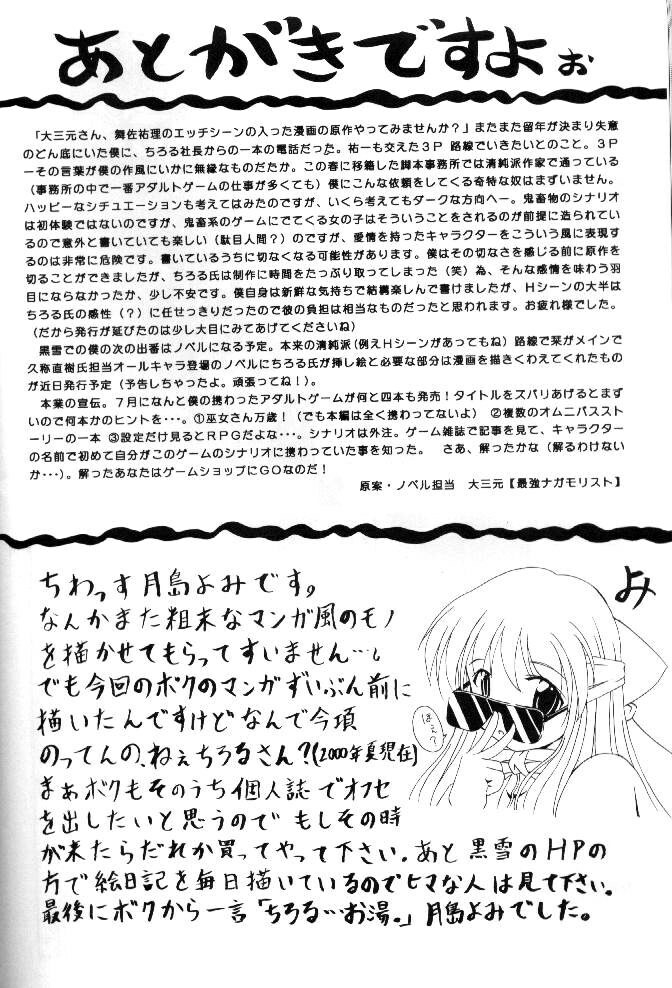 あとがきですよぉ
「大三元さん、舞佐祐理のエッチシーンの入った漫画の原作やってみませんか?」またまた留年が決まり失意
のどん底にいた僕に、ちろる社長からの一本の電話だった。祐一も交えた3P 路線でいきたいとのこと。3P
ーその言葉が僕の作風にいかに無縁なものだたか。この春に移籍した脚本事務所では清純派作家で通っている
(事務所の中で一番アダルトゲームの仕事が多くても)僕にこんな依頼をしてくる奇特な奴はまずいません。
ハッピーなシチュエーションも考えてはみたのですが、いくら考えてもダークな方向へー。鬼畜物のシナリオ
は初体験ではないのですが、鬼畜系のゲームにでてくる女の子はそういうことをされるのが前提に造られてい
るので意外と書いていても楽しい(駄目人間?)のですが、愛情を持ったキャラクターをこういう風に表現す
るのは非常に危険です。書いているうちに切なくなる可能性があります。僕はその切なさを感じる前に原作を
切ることができましたが、ちろる氏は制作に時間をたっぷり取ってしまった(笑)為、そんな感情を味わう羽
目にならなかったか、少し不安です。僕自身は新鮮な気持ちで結構楽しんで書けましたが、Hシーンの大半は
ちろる氏の感性(?)に任せっきりだったので彼の負担は相当なものだったと思われます。お疲れ様でした。
(だから発行が延びたのは少し大目にみてあげてくださいね)
黒雪での僕の次の出番はノベルになる予定。本来の清純派(例えHシーンがあってもね)路線で栞がメインで
久称直樹氏担当オールキャラ登場のノベルにちろる氏が挿し絵と必要な部分は漫画を描きくわえてくれたもの
が近日発行予定(予告しちゃったよ。頑張ってね!)。
本業の宣伝。7月になんと僕の携わったアダルトゲームが何と四本も発売!タイトルをズバリあげるとまず
いので何本かのヒントを・・・。①巫女さん万歳!(でも本編は全く携わってないよ) ②複数のオムニバスス
トーリーの一本 ③設定だけ見るとRPGだよな・・・。シナリオは外注。ゲーム雑誌で記事を見て、キャラクター
の名前で初めて自分がこのゲームのシナリオに携わっていた事を知った。 さあ、解ったかな(解るわけない
か・・・)。解ったあなたはゲームショップにGOなのだ!
原案・ノベル担当 大三元【最強ナガモリスト】
ちわっす月島よみです。
なんかまた粗末なマンガ風のモノ
を描かせてもらってすいません…。
でも今回のボクのマンガずいぶん前に
描いたんですけどなんで今頃
のってんの、ねぇちろるさん?(2000年夏現在)
まぁボクもそのうち個人誌でオフセ
を出したいと思うので もしその時
が来たらだれか買ってやって下さい。あと 黒雪のHPの
方で絵日記を毎日描いているのでヒマな人は見て下さい。
最後にボクから一言「ちろる…お湯。」月島よみでした。
よみ